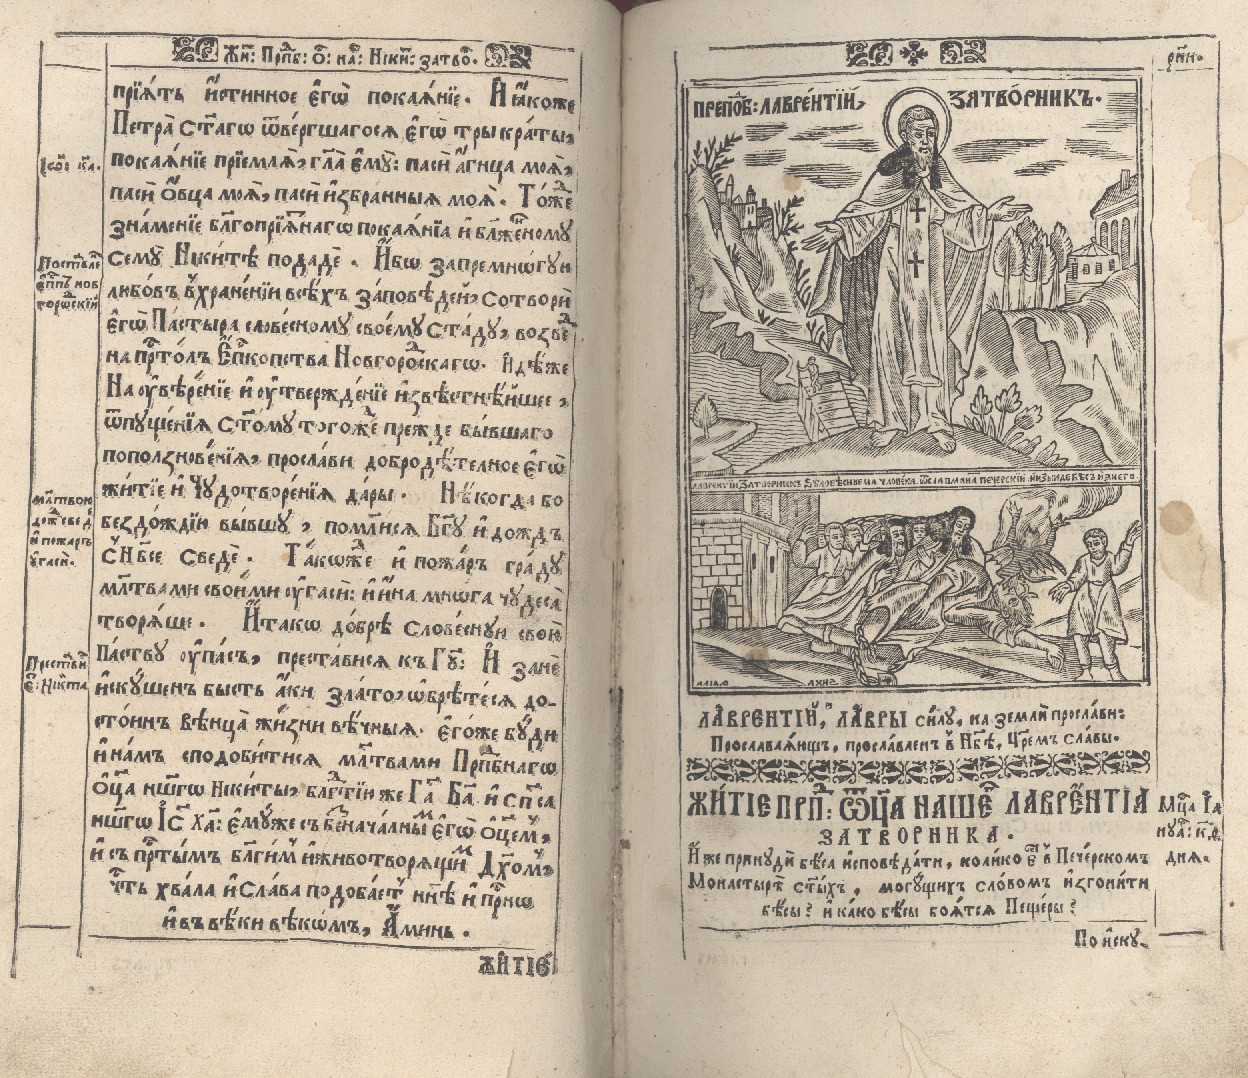 Жи: Прпб: О: на: Ники: затво.
прїѧ́тъ и҆́стинное є҆гѡ̀ покаѧ́нїе. И҆ ꙗ҆́коже
Петра̀ ст҃а́гѡ ѿве́ргшагосѧ є҆гѡ̀ трыкра́ты,
покаѧ́нїе прїе́млѧ, гл҃а є҆мꙋ̀: пасѝ а҆́гнца моѧ̀,
пасѝ о҆́вца моѧ̀, пасѝ и҆збра́нныѧ моѧ̀. То́же
зна́менїе бл҃гопрїѧ́тнагѡ покаѧ́нїѧ и҆ бл҃же́нномꙋ
семꙋ̀ Ники́тѣ подадѐ. И҆́бо за премнѡ́гꙋю
любо́вь в̾ хране́нїи всѣ́хъ за́повѣдей, сотворѝ
є҆гѡ̀ Па́стырѧ слове́сномꙋ своє́мꙋ ста́дꙋ, возвє́д
на прⷭ҇то́лъ Є҆пⷭ҇копства Новгоро́дскагѡ. И҆дѣ́же
На ᲂу҆вѣре́нїе и҆ ᲂу҆твержде́нїе и҆звѣ́стнѣйшее,
ѿпꙋще́нїѧ ст҃о́мꙋ тогѡ́же пре́жде бы́вшаго
поползнове́нїѧ, просла́ви добродѣ́телное є҆гѡ̀
житїѐ и҆ Чꙋдотворе́нїѧ да́ры. Нѣ́когда бо
бездо́ждїю бы́вшꙋ, помл҃и́сѧ Бг҃ꙋ и҆ до́ждъ
с̾ Нб҃сѐ сведѐ. Та́кѡже и҆ пожа́ръ гра́дꙋ
мл҃твами свои́ми ᲂу҆гасѝ: и҆ и҆́на мнѡ́га чꙋдеса̀
творѧ́ше. И҆ та́кѡ до́брѣ слове́снꙋю свою̀
Па́ствꙋ ᲂу҆па́съ, преста́висѧ къ Гꙋ҃: И҆ занѐ
и҆скꙋ́шенъ бы́сть а҆́ки зла́то, ѡ҆брѣ́тесѧ до-
сто́инъ вѣнца̀ жи́зни вѣ́чныѧ. Є҆гѡ́же бꙋ́ди
и҆ на́мъ сподо́битисѧ мл҃твами Прпⷣбнагѡ
Ѻ҆ц҃а̀ нш҃гѡ Ники́ты, блгⷣтїю же Гⷭ҇а Бг҃а и҆ Сп҃са
нш҃гѡ І҆с҃ Хⷭ҇а: Є҆мꙋ́же съ безнача́лнымъ є҆гѡ̀ Ѻ҆ц҃ем,
и҆ съ прⷭ҇ты́мъ благи́мъ и҆ животворѧ́щимъ Дх҃омъ,
че́сть хвала̀ и҆ сла́ва подоба́етъ ны́нѣ и҆ при́снѡ
и҆ въ вѣ́ки вѣкѡ́мъ, А҆ми́нь.
ЖИТІЕ
І҆ѡ҃: ка.
Поставле́
є҆пⷭ҇пъ нов
горо́дскїй
мл҃твою
до́ждь сведѐ
и҆ пожа́ръ
ᲂу҆гасѝ.
Преста́ви
с̾: Ники́та
рн҃и.
ПРЕПОⷣБ: ЛАВРЕНТІЙ, ЗАТВОРНИКЪ.
ЛАВРЕ́НТІЙ, ЛА́ВРЫ си́лꙋ, на землѝ просла́ви:
Прославлѧ́ющъ, просла́вленъ в̾ Нб҃ѣ, Цр҃емъ сла́вы.
ЖИТІЕ ПРПⷣ: ѾЦ҃А НАШЕГѠ ЛАВРЕ́НТІА
ЗАТВОРНИКА.
И҆́же принꙋдѝ бѣ́са и҆сповѣ́дати, коли́ко є҆́сть в̾ Пече́рскомъ
Монастырѣ̀ ст҃ы́хъ, могꙋ́щихъ сло́вомъ и҆згони́ти
бѣ́сы? и҆ ка́ко бѣ́сы боѧ́тсѧ Пеще́ры?
Мцⷭ҇а І҆а
нꙋа: к҃ѳ.
днѧ.
По и҆скꙋ-